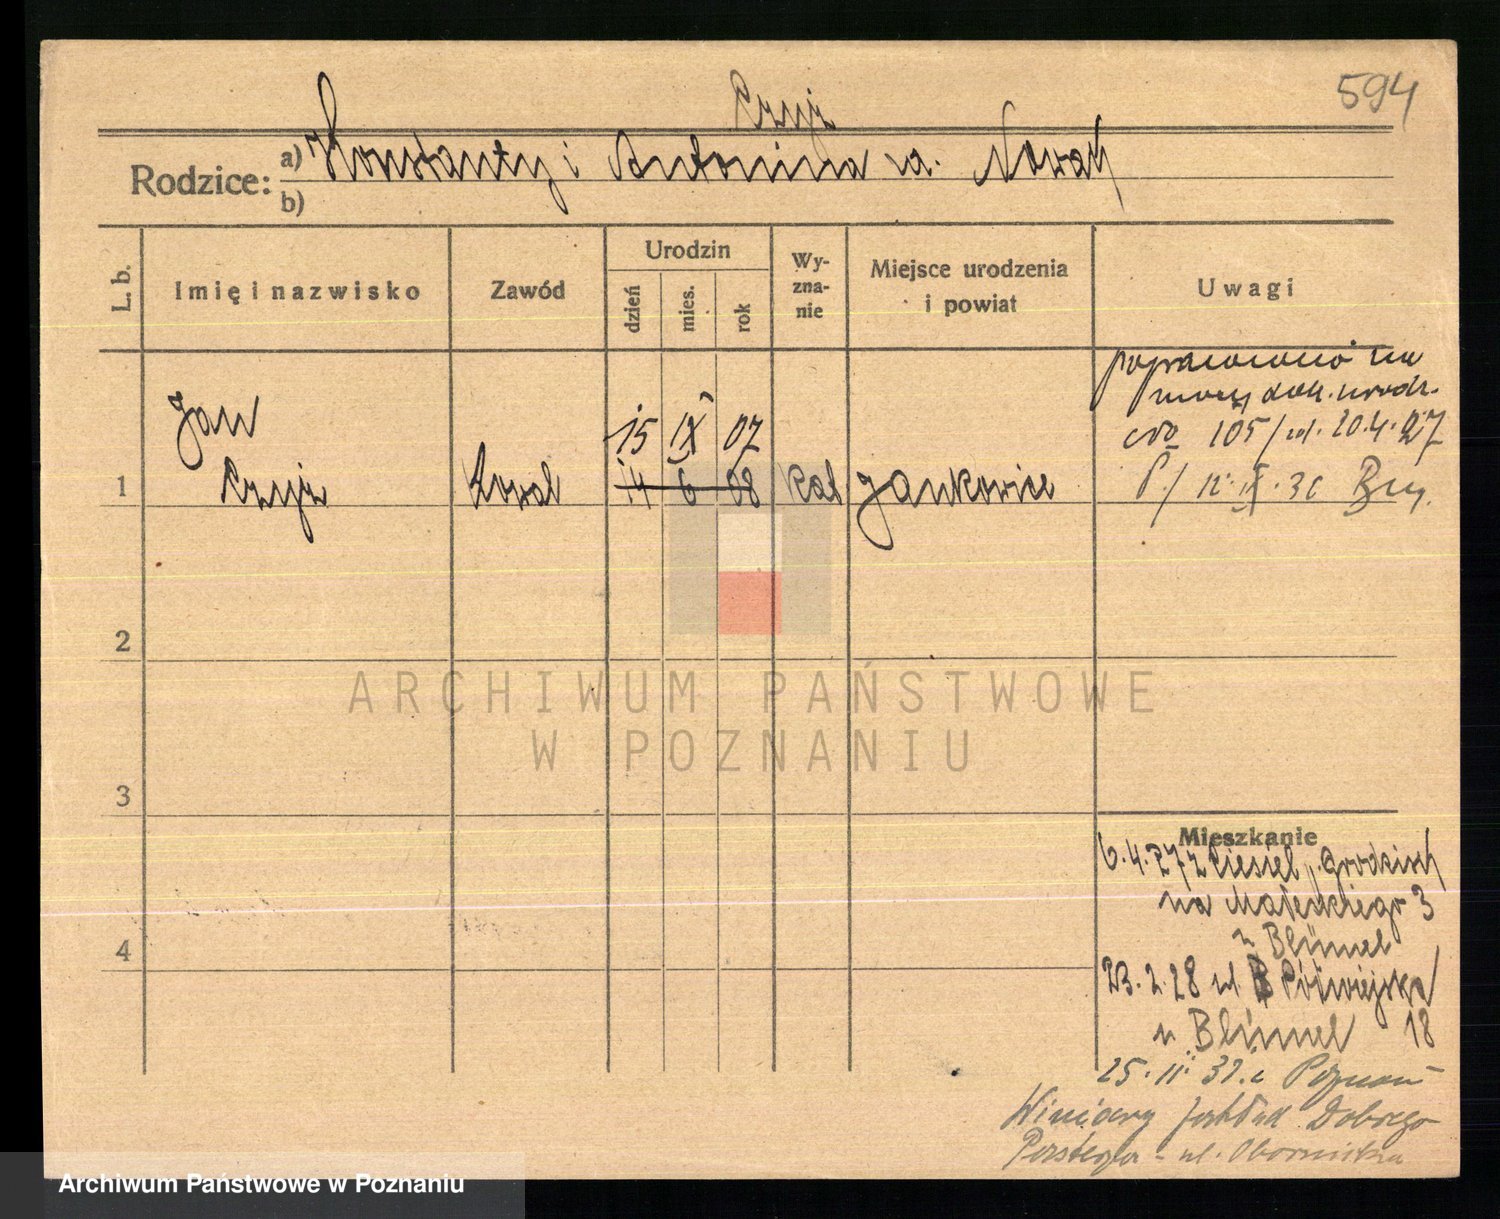 594
Czyż
Rodzice: a) Konstanty i Antonina z d. Nowak
b)
L. b. Imię i nazwisko Zawód Urodzin dzień mies. rok Wyznanie Miejsce urodzenia i powiat Uwagi
poprawiono na
mocy dok. urodz.
No 105/ 20.4.27
P./ 12.IX.30
Jan 15 IX 07
1 Czyż kowal 14 6 08 kat Jankowice
2
ARCHIWUM PAŃSTWOWE
W POZNANIU
3
Mieszkanie
6.4.27 z Grodzisk
na Małeckiego 3
u Blümel
4
23.2.28 ul Półwiejska
18
u Blümel
25.II.31. Poznań
Winiary Zakład Dobrego
Pasterza - ul. Obornicka
Archiwum Państwowe w Poznaniu